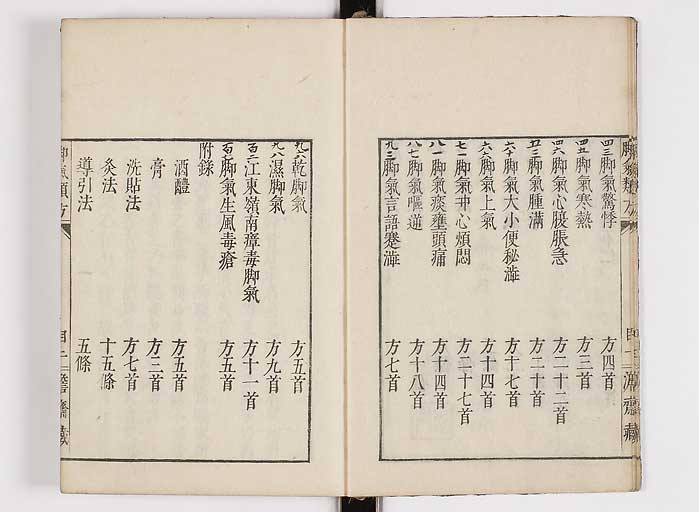 四三脚氣驚悸　方四首
四五脚氣寒熱　方三首
四六脚氣心腹脹急　方二十二首
五三脚氣腫滿　方二十首
六十脚氣大小便秘澁　方十七首
六八脚氣上氣　方十四首
七二脚氣冲心煩悶　方二十七首
八一脚氣痰壅頭痛　方十四首
八七脚氣嘔逆　方十八首
九三脚氣言語蹇澁　方七首
九六乾脚氣　方五首
九八濕脚氣　方九首
百二江東嶺南瘴毒脚氣　方十一首
脚氣生風毒瘡　方五首
附錄
酒醴　方五首
膏　方二首
洗貼法　方七首
灸法　十五條
導引法　五條
脚氣類方